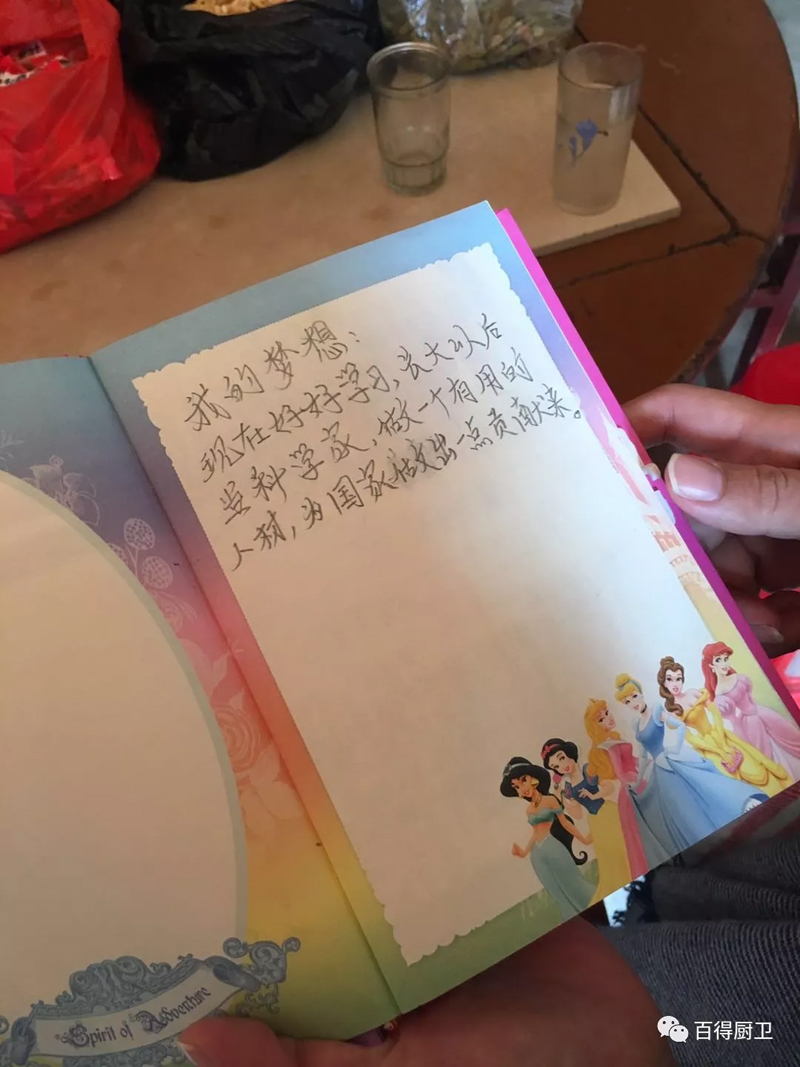 我的梦想：
现在好好学习，长大以后
当科学家，做一个有用的
人材，为国家做出一点贡献来。
Spirit of Adventure
百得厨卫